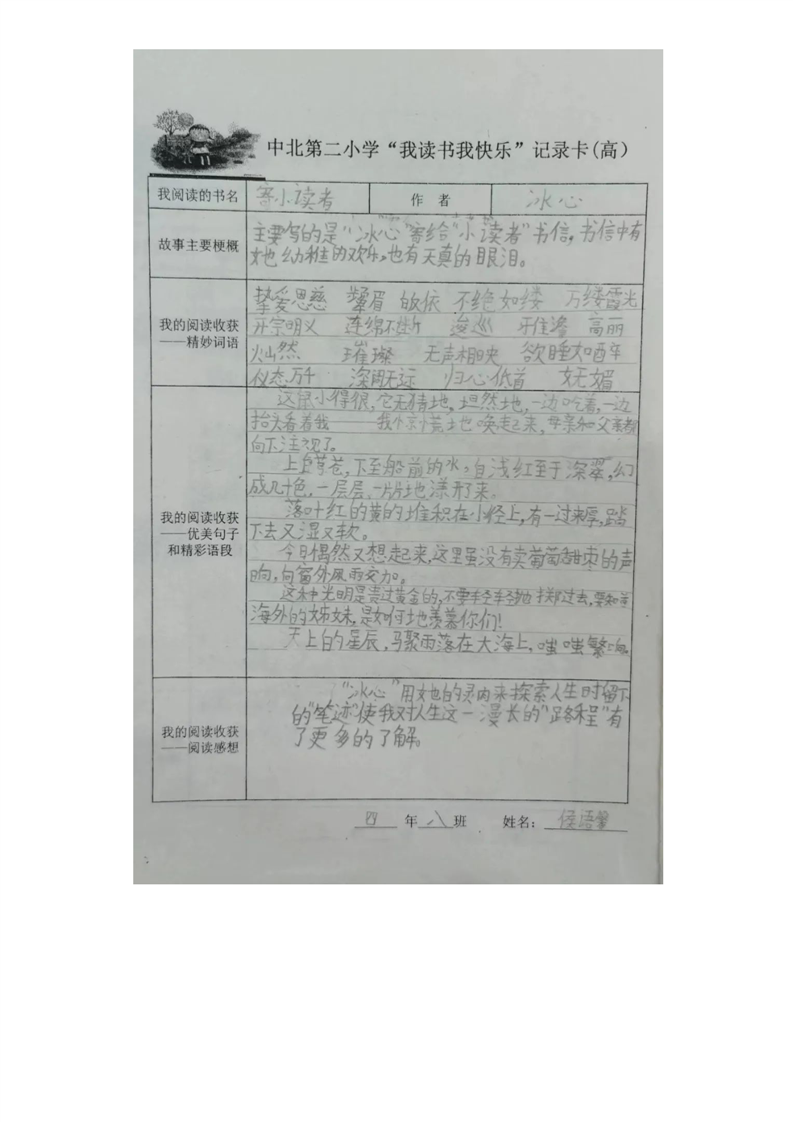 中北第二小学“我读书我快乐”记录卡(高)
我阅读的书名 寄小读者 作 者 冰心
故事主要梗概
主要写的是“冰心”寄给“小读者”书信,书信中有
她幼稚的欢乐,也有天真的眼泪。
我的阅读收获
——精妙词语
挚爱思慈 颦眉 皈依 不绝如缕 万缕霞光
开宗明义 连绵不断 逡巡 高丽
灿然 璀璨 无声相映 欲睡如醉
仪态万千 深阔无远 归心低首 妩媚
我的阅读收获
——优美句子
和精彩语段
这鼠小得很,它无猜地,坦然地,一边吃着,一边
抬头看着我——我惊慌地唤起来,母亲和父亲都
向下注视了。
上自穹苍,下至船前的水,自浅红至于深翠,幻
成几十色,一层层,一片片地漾开来。
落叶红的黄的堆积在小径上,有一过来厚,踏
下去又湿又软。
今日偶然又想起来,这里虽没有卖葡萄甜枣的声
响,向窗外风雨交加。
这种光明是贵过黄金的,不要轻轻抛掷过去,要知道
海外的姊妹,是如何地羡慕你们!
天上的星辰,马聚雨落在大海上,嗤嗤繁响。
我的阅读收获
——阅读感想
“冰心”用她的灵肉来探索人生时留下
的“笔迹”使我对人生这一漫长的“路程”有
了更多的了解。
四 年 八 班 姓名: